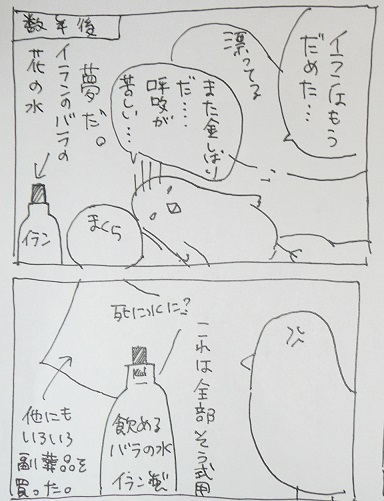 数年後
イランはもう
だめだ…
漂ってる
また金しばり
だ……
呼吸が
苦しい…
夢だ。
イランのバラの
花の水
まくら
イラン
これは全部そう式用
死に水に?
飲める
バラの水
イラン製
他にも
いろいろ
副葬品を
買った。